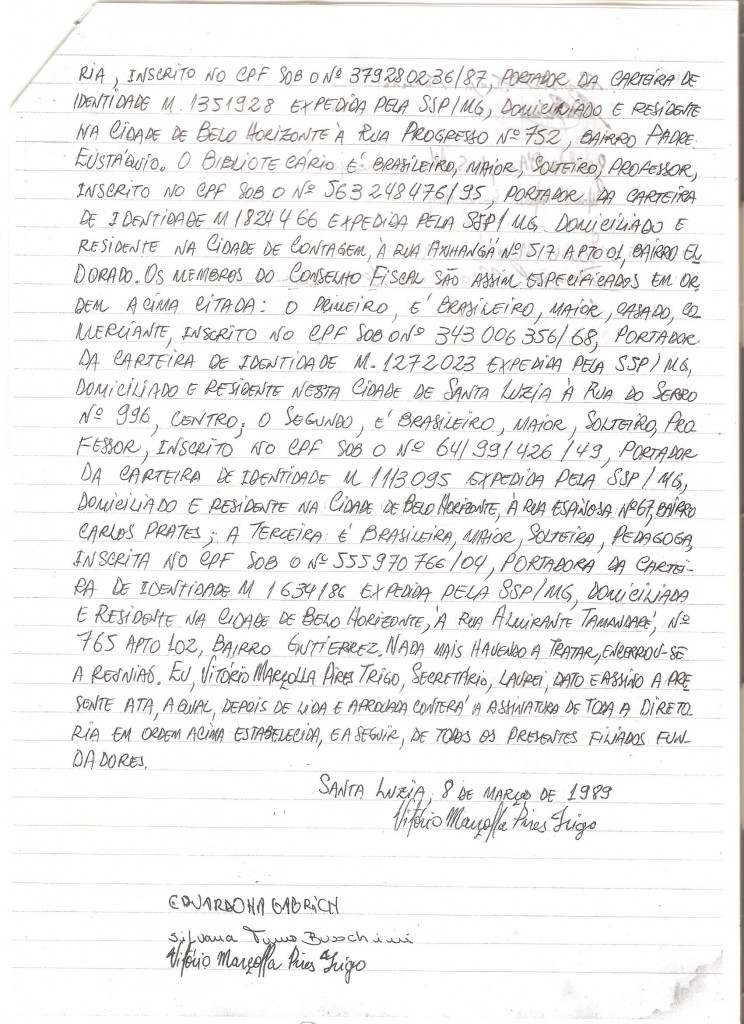 RIA, INSCRITO NO CPF SOB O Nº 379280236/87, PORTADOR DA CARTEIRA DE
IDENTIDADE M. 1351928 EXPEDIDA PELA SSP/MG, DOMICILIADO E RESIDENTE
NA CIDADE DE BELO HORIZONTE À RUA PROGRESSO Nº 752, BAIRRO PADRE
EUSTÁQUIO. O BIBLIOTECÁRIO É BRASILEIRO, MAIOR, SOLTEIRO, PROFESSOR,
INSCRITO NO CPF SOB O Nº 563248476/95, PORTADOR DA CARTEIRA
DE IDENTIDADE M 1824466 EXPEDIDA PELA SSP/MG. DOMICILIADO E
RESIDENTE NA CIDADE DE CONTAGEM, À RUA Nº 517 APTO 01, BAIRRO EL
DORADO. OS MEMBROS DO CONSELHO FISCAL SÃO ASSIM ESPECIFICADOS EM OR,
DEM ACIMA CITADA: O PRIMEIRO, É BRASILEIRO, MAIOR, CASADO, CO
MERCIANTE, INSCRITO NO CPF SOB O Nº 343006356/68, PORTADOR
DA CARTEIRA DE IDENTIDADE M. 1272023 EXPEDIDA PELA SSP/MG,
DOMICILIADO E RESIDENTE NESTA CIDADE DE SANTA LUZIA À RUA DO SERRO
Nº 996, CENTRO; O SEGUNDO, É BRASILEIRO, MAIOR, SOLTEIRO, PRO
FESSOR, INSCRITO NO CPF SOB O Nº 641991426/49, PORTADOR
DA CARTEIRA DE IDENTIDADE M 1113095 EXPEDIDA PELA SSP/MG,
DOMICILIADO E RESIDENTE NA CIDADE DE BELO HORIZONTE, À RUA ESPINOSA Nº 67, BAIRRO
CARLOS PRATES; A TERCEIRA É BRASILEIRA, MAIOR, SOLTEIRA, PEDAGOGA,
INSCRITA NO CPF SOB O Nº 555970766/04, PORTADORA DA CARTEI-
RA DE IDENTIDADE M 1634186 EXPEDIDA PELA SSP/MG, DOMICILIADA
E RESIDENTE NA CIDADE DE BELO HORIZONTE, À RUA ALMIRANTE TAMANDARÉ, Nº
765 APTO 102, BAIRRO GUTIERREZ. NADA MAIS HAVENDO A TRATAR, ENCERROU-SE
A REUNIÃO. EU, VITÓRIO MARÇOLLA PIRES TRIGO, SECRETÁRIO, LAVREI, DATO E ASSINO A PRE
SENTE ATA, A QUAL, DEPOIS DE LIDA E APROVADA CONTERÁ A ASSINATURA DE TODA A DIRETO
RIA EM ORDEM ACIMA ESTABELECIDA, E A SEGUIR, DE TODOS OS PRESENTES FILIADOS FUN-
DADORES.
SANTA LUZIA, 8 DE MARÇO DE 1989
Vitório Marçolla Pires Trigo
EDUARDO HA GABRICH
Silvana
Vitório Marçolla Pires Trigo